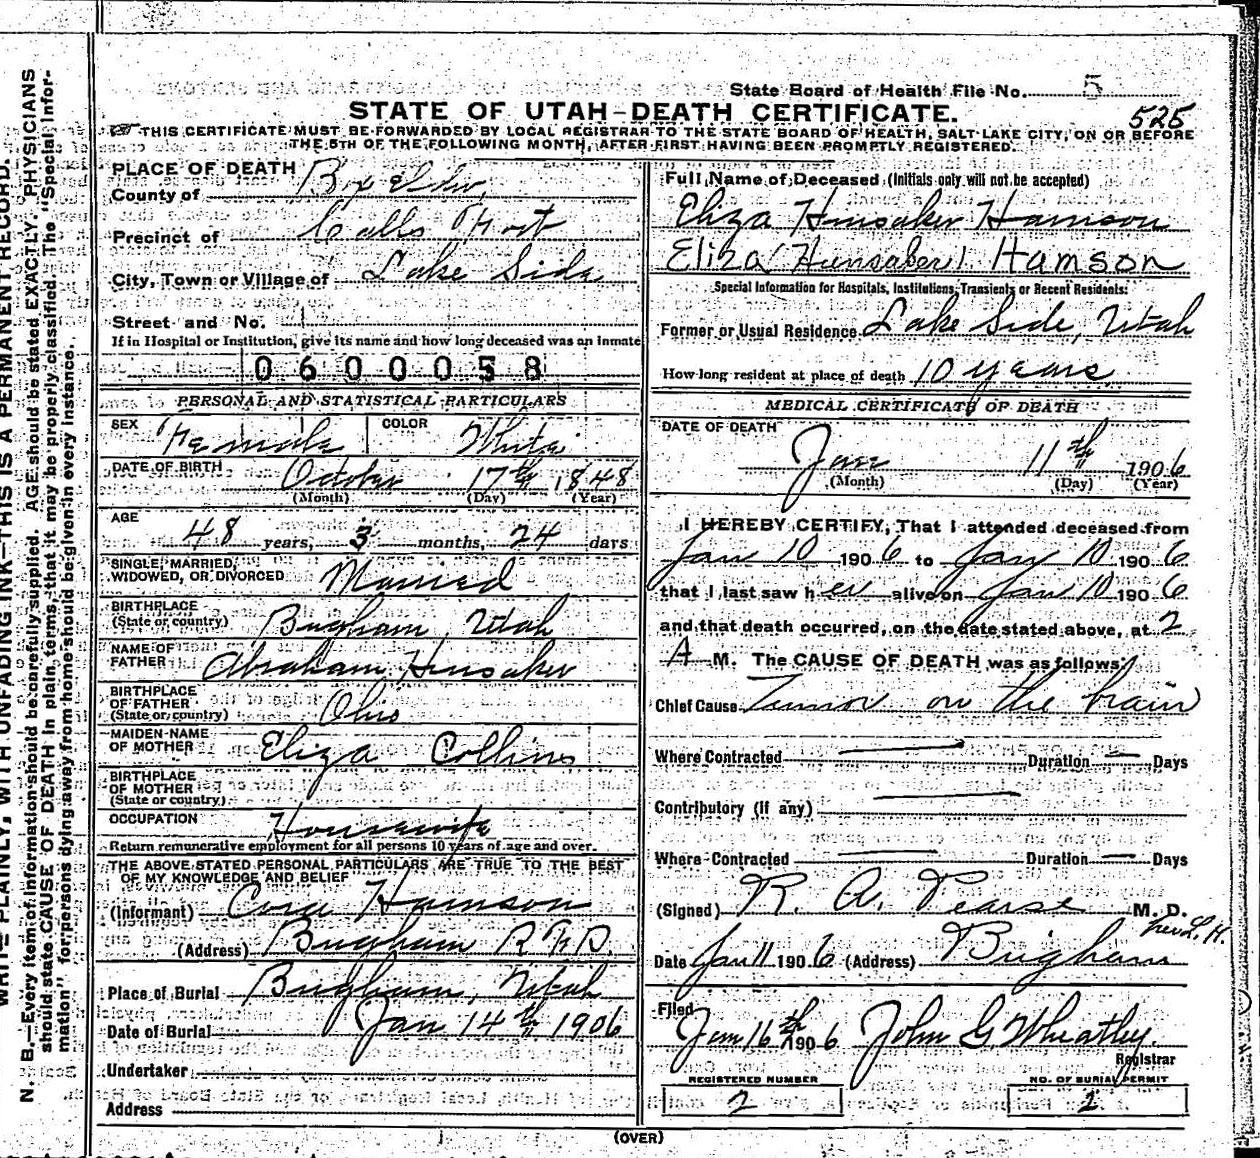 WRITE PLAINLY, WITH UNFADING INK—THIS IS A PERMANENT RECORD.
N. B.—Every item of information should be carefully supplied. AGE should be stated EXACTLY. PHYSICIANS
should state CAUSE OF DEATH in plain terms, that it may be properly classified. The "Special Infor-
mation" for persons dying away from home should be given in every instance.
State Board of Health File No. 5
STATE OF UTAH—DEATH CERTIFICATE.
525
THIS CERTIFICATE MUST BE FORWARDED BY LOCAL REGISTRAR TO THE STATE BOARD OF HEALTH, SALT LAKE CITY, ON OR BEFORE
THE 5TH OF THE FOLLOWING MONTH, AFTER FIRST HAVING BEEN PROMPTLY REGISTERED.
PLACE OF DEATH
County of Box Elder
Precinct of Calls Fort
City, Town or Village of Lake Side
Street and No.
If in Hospital or Institution, give its name and how long deceased was an inmate
0600058
PERSONAL AND STATISTICAL PARTICULARS
SEX Female COLOR White
DATE OF BIRTH October 17th 1848
(Month) (Day) (Year)
AGE
48 years, 3 months, 24 days
SINGLE, MARRIED,
WIDOWED, OR DIVORCED Married
BIRTHPLACE
(State or country) Brigham, Utah
NAME OF
FATHER Abraham Hunsaker
BIRTHPLACE
OF FATHER
(State or country) Ohio
MAIDEN NAME
OF MOTHER Eliza Collins
BIRTHPLACE
OF MOTHER
(State or country)
OCCUPATION Housewife
Return remunerative employment for all persons 10 years of age and over.
THE ABOVE STATED PERSONAL PARTICULARS ARE TRUE TO THE BEST
OF MY KNOWLEDGE AND BELIEF
(Informant) Cora Hamson
(Address) Brigham R F D.
Place of Burial Brigham, Utah
Date of Burial Jan 14th 1906
Undertaker
Address
Full Name of Deceased (Initials only will not be accepted)
Eliza Hunsaker Hamson
Eliza (Hunsaker) Hamson
Special Information for Hospitals, Institutions, Transients or Recent Residents:
Former or Usual Residence Lake Side, Utah
How long resident at place of death 10 years
MEDICAL CERTIFICATE OF DEATH
DATE OF DEATH
Jan 11th 1906
(Month) (Day) (Year)
I HEREBY CERTIFY, That I attended deceased from
Jan 10 1906 to Jan 10 1906
that I last saw her alive on Jan 10 1906
and that death occurred, on the date stated above, at 2
A M. The CAUSE OF DEATH was as follows:
Chief Cause Tumor on the brain
Where Contracted — Duration — Days
Contributory (if any) —
Where Contracted — Duration — Days
(Signed) R. A. Pearse M. D.
Date Jan 11 1906 (Address) Brigham
Filed
Jan 16th 1906 John G Wheatley
Registrar
REGISTERED NUMBER
2
NO. OF BURIAL PERMIT
2
(OVER)